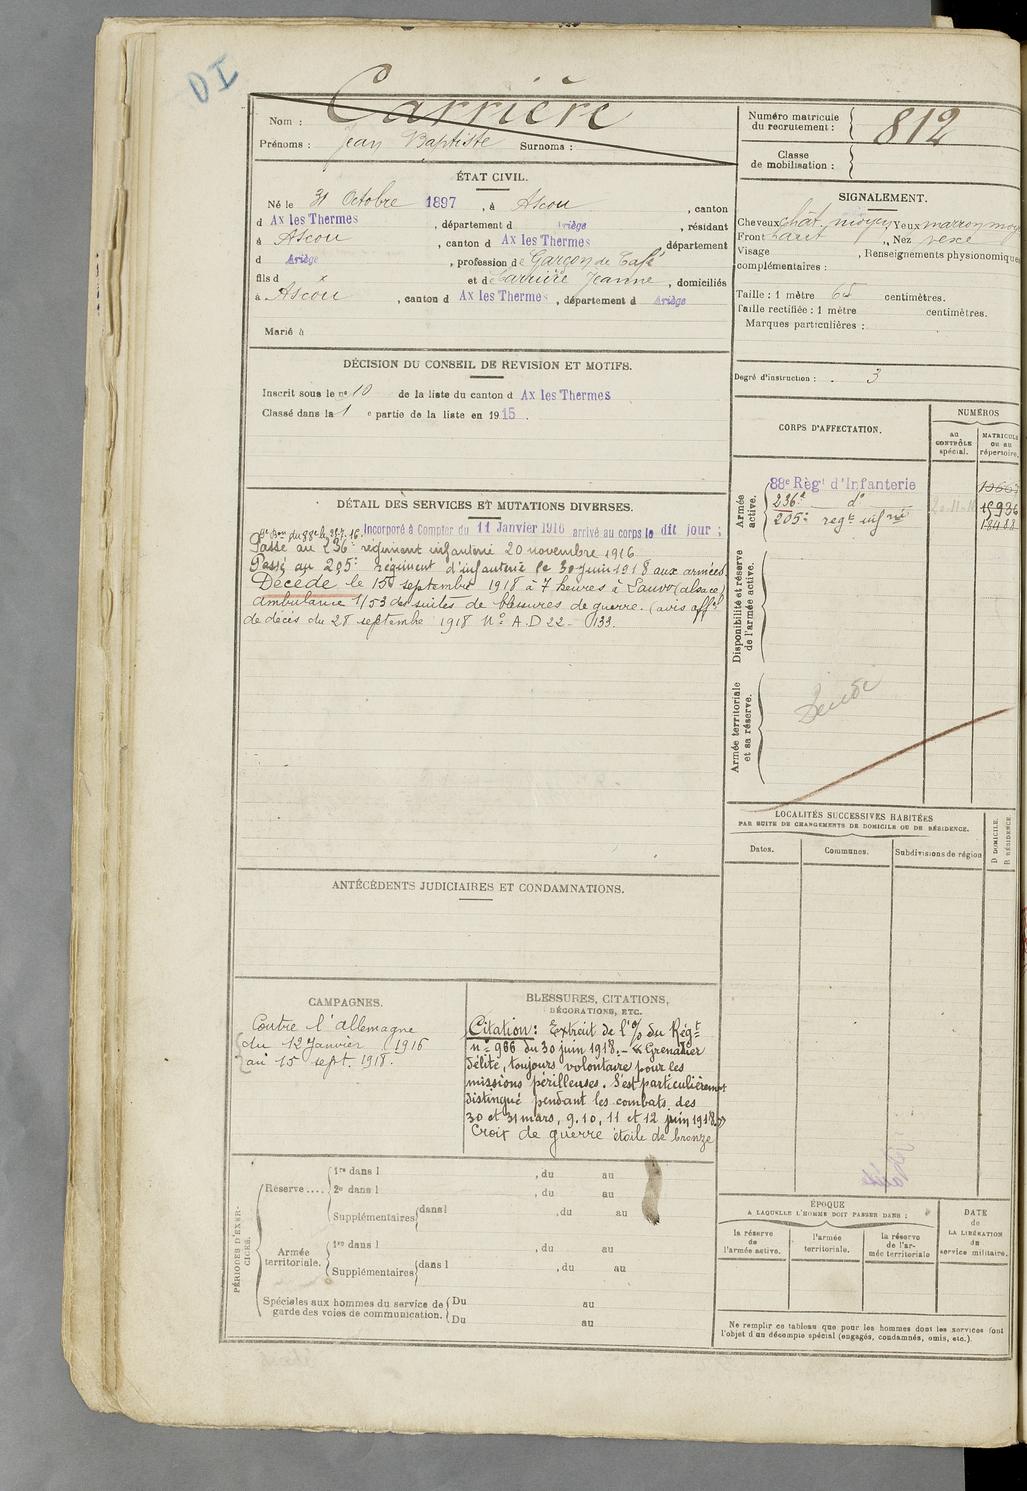 DI
Nom : Carrière
Prénoms : Jean Baptiste Surnoms :
Numéro matricule
du recrutement : 812
Classe
de mobilisation :
ÉTAT CIVIL.
Né le 31 Octobre 1897, à Ascou, canton
d Ax les Thermes, département d Ariège, résidant
à Ascou, canton d Ax les Thermes département
d Ariège, profession de Garçon de Café
fils d x et de Carrière Jeanne, domiciliés
à Ascou, canton d Ax les Thermes, département d Ariège
Marié à
SIGNALEMENT.
Cheveux chât. moyen Yeux marron moy
Front haut, Nez vexe
Visage , Renseignements physionomiques
complémentaires :
Taille : 1 mètre 65 centimètres.
Taille rectifiée : 1 mètre centimètres.
Marques particulières :
Degré d'instruction : 3
DÉCISION DU CONSEIL DE REVISION ET MOTIFS.
Inscrit sous le nº 10 de la liste du canton d Ax les Thermes
Classé dans la 1 e partie de la liste en 1915.
DÉTAIL DES SERVICES ET MUTATIONS DIVERSES.
Incorporé à Compter du 11 Janvier 1916 arrivé au corps le dit jour ;
Passé au 236e régiment infanterie 20 novembre 1916
Passé au 205e Régiment d'infanterie le 30 juin 1918 aux armées
Décédé le 15 septembre 1918 à 7 heures à Lauw (alsace)
ambulance 1/53 des suites de blessures de guerre. (avis off.el
de décès du 28 septembre 1918 Nº A.D 22- 133.
CORPS D'AFFECTATION.
NUMÉROS
au
CONTRÔLE
spécial.
MATRICULE
ou au
répertoire.
Armée
active.
88e Règt d'Infanterie
236e dº 15936
205e regt infrie 18488
Disponibilité et réserve
de l'armée active.
Armée territoriale
et sa réserve.
LOCALITÉS SUCCESSIVES HABITÉES
PAR SUITE DE CHANGEMENTS DE DOMICILE OU DE RÉSIDENCE.
Dates.
Communes.
Subdivisions de région
D. DOMICILE.
R. RÉSIDENCE.
ANTÉCÉDENTS JUDICIAIRES ET CONDAMNATIONS.
CAMPAGNES.
Contre l'allemagne
du 12 Janvier 1916
au 15 sept. 1918.
BLESSURES, CITATIONS,
DÉCORATIONS, ETC.
Citation: Extrait de l'o/ du Régt
nº 966 du 30 juin 1918. - « Grenadier
d'élite, toujours volontaire pour les
missions périlleuses. S'est particulièrement
distingué pendant les combats des
30 et 31 mars, 9.10, 11 et 12 juin 1918 »
Croix de guerre étoile de bronze
PÉRIODES D'EXERCICES.
Réserve ....
1re dans l , du au
2e dans l , du au
Supplémentaires dans l , du au
Armée
territoriale.
1re dans l , du au
Supplémentaires dans l , du au
Spéciales aux hommes du service de
garde des voies de communication.
Du au
Du au
ÉPOQUE
A LAQUELLE L'HOMME DOIT PASSER DANS :
la réserve
de
l'armée active.
l'armée
territoriale.
la réserve
de l'ar-
mée territoriale
DATE
de
LA LIBÉRATION
du
service militaire.
Ne remplir ce tableau que pour les hommes dont les services font
l'objet d'un décompte spécial (engagés, condamnés, omis, etc.).